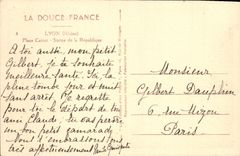 LA DOUCE FRANCE
LYON (Rhône)
Place Carnot - Statue de la République
A toi aussi, mon petit
Gilbert, je te souhaite
meilleure santé. Ici la
pluie tombe jour et nuit
sans arrêt. Je regrette
pour toi le départ de ton
ami Claude, tu vas perdre
un bon petit camarade
Nous t'embrassons tous
très affectueusement
Monsieur
Gilbert Dauphin
6 rue
Paris